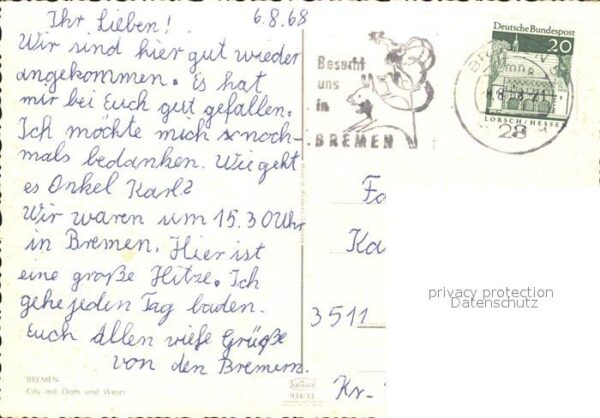 Ihr Lieben! 6.8.68
Wir sind hier gut wieder
angekommen. Es hat
mir bei Euch gut gefallen.
Ich möchte mich noch-
mals bedanken. Wie geht
es Onkel Karl?
Wir waren um 15.30 Uhr
in Bremen. Hier ist
eine große Hitze. Ich
gehe jeden Tag baden.
Euch Allen viele Grüße
von den Bremern.
BREMEN
City mit Dom und Weser
Besucht
uns
in
BREMEN
Deutsche Bundespost
20
LORSCH/HESSEN
28
Fa
Ka
3511
Kr-
KRÜGER
934/11
privacy protection
Datenschutz